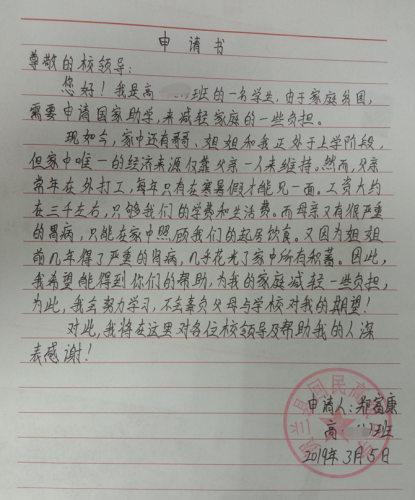 申请书
尊敬的校领导：
您好！我是高 班的一名学生，由于家庭贫困，
需要申请国家助学，来减轻家庭的一些负担。
现如今，家中还有哥哥、姐姐和我正处于上学阶段，
但家中唯一的经济来源仅靠父亲一人来维持。然而，父亲
常年在外打工，每年只有在寒暑假才能见一面。工资大约
在三千左右，只够我们的学费和生活费。而母亲又有很严重
的胃病，只能在家中照顾我们的起居饮食。又因为姐姐
前几年得了严重的肾病，几乎花光了家中所有积蓄。因此，
我希望能得到你们的帮助，为我的家庭减轻一些负担，
为此，我会努力学习，不会辜负父母与学校对我的期望！
对此，我将在这里对各位校领导及帮助我的人深
表感谢！
申请人：郑富康
高 班
2019年3月5日
兰县国民